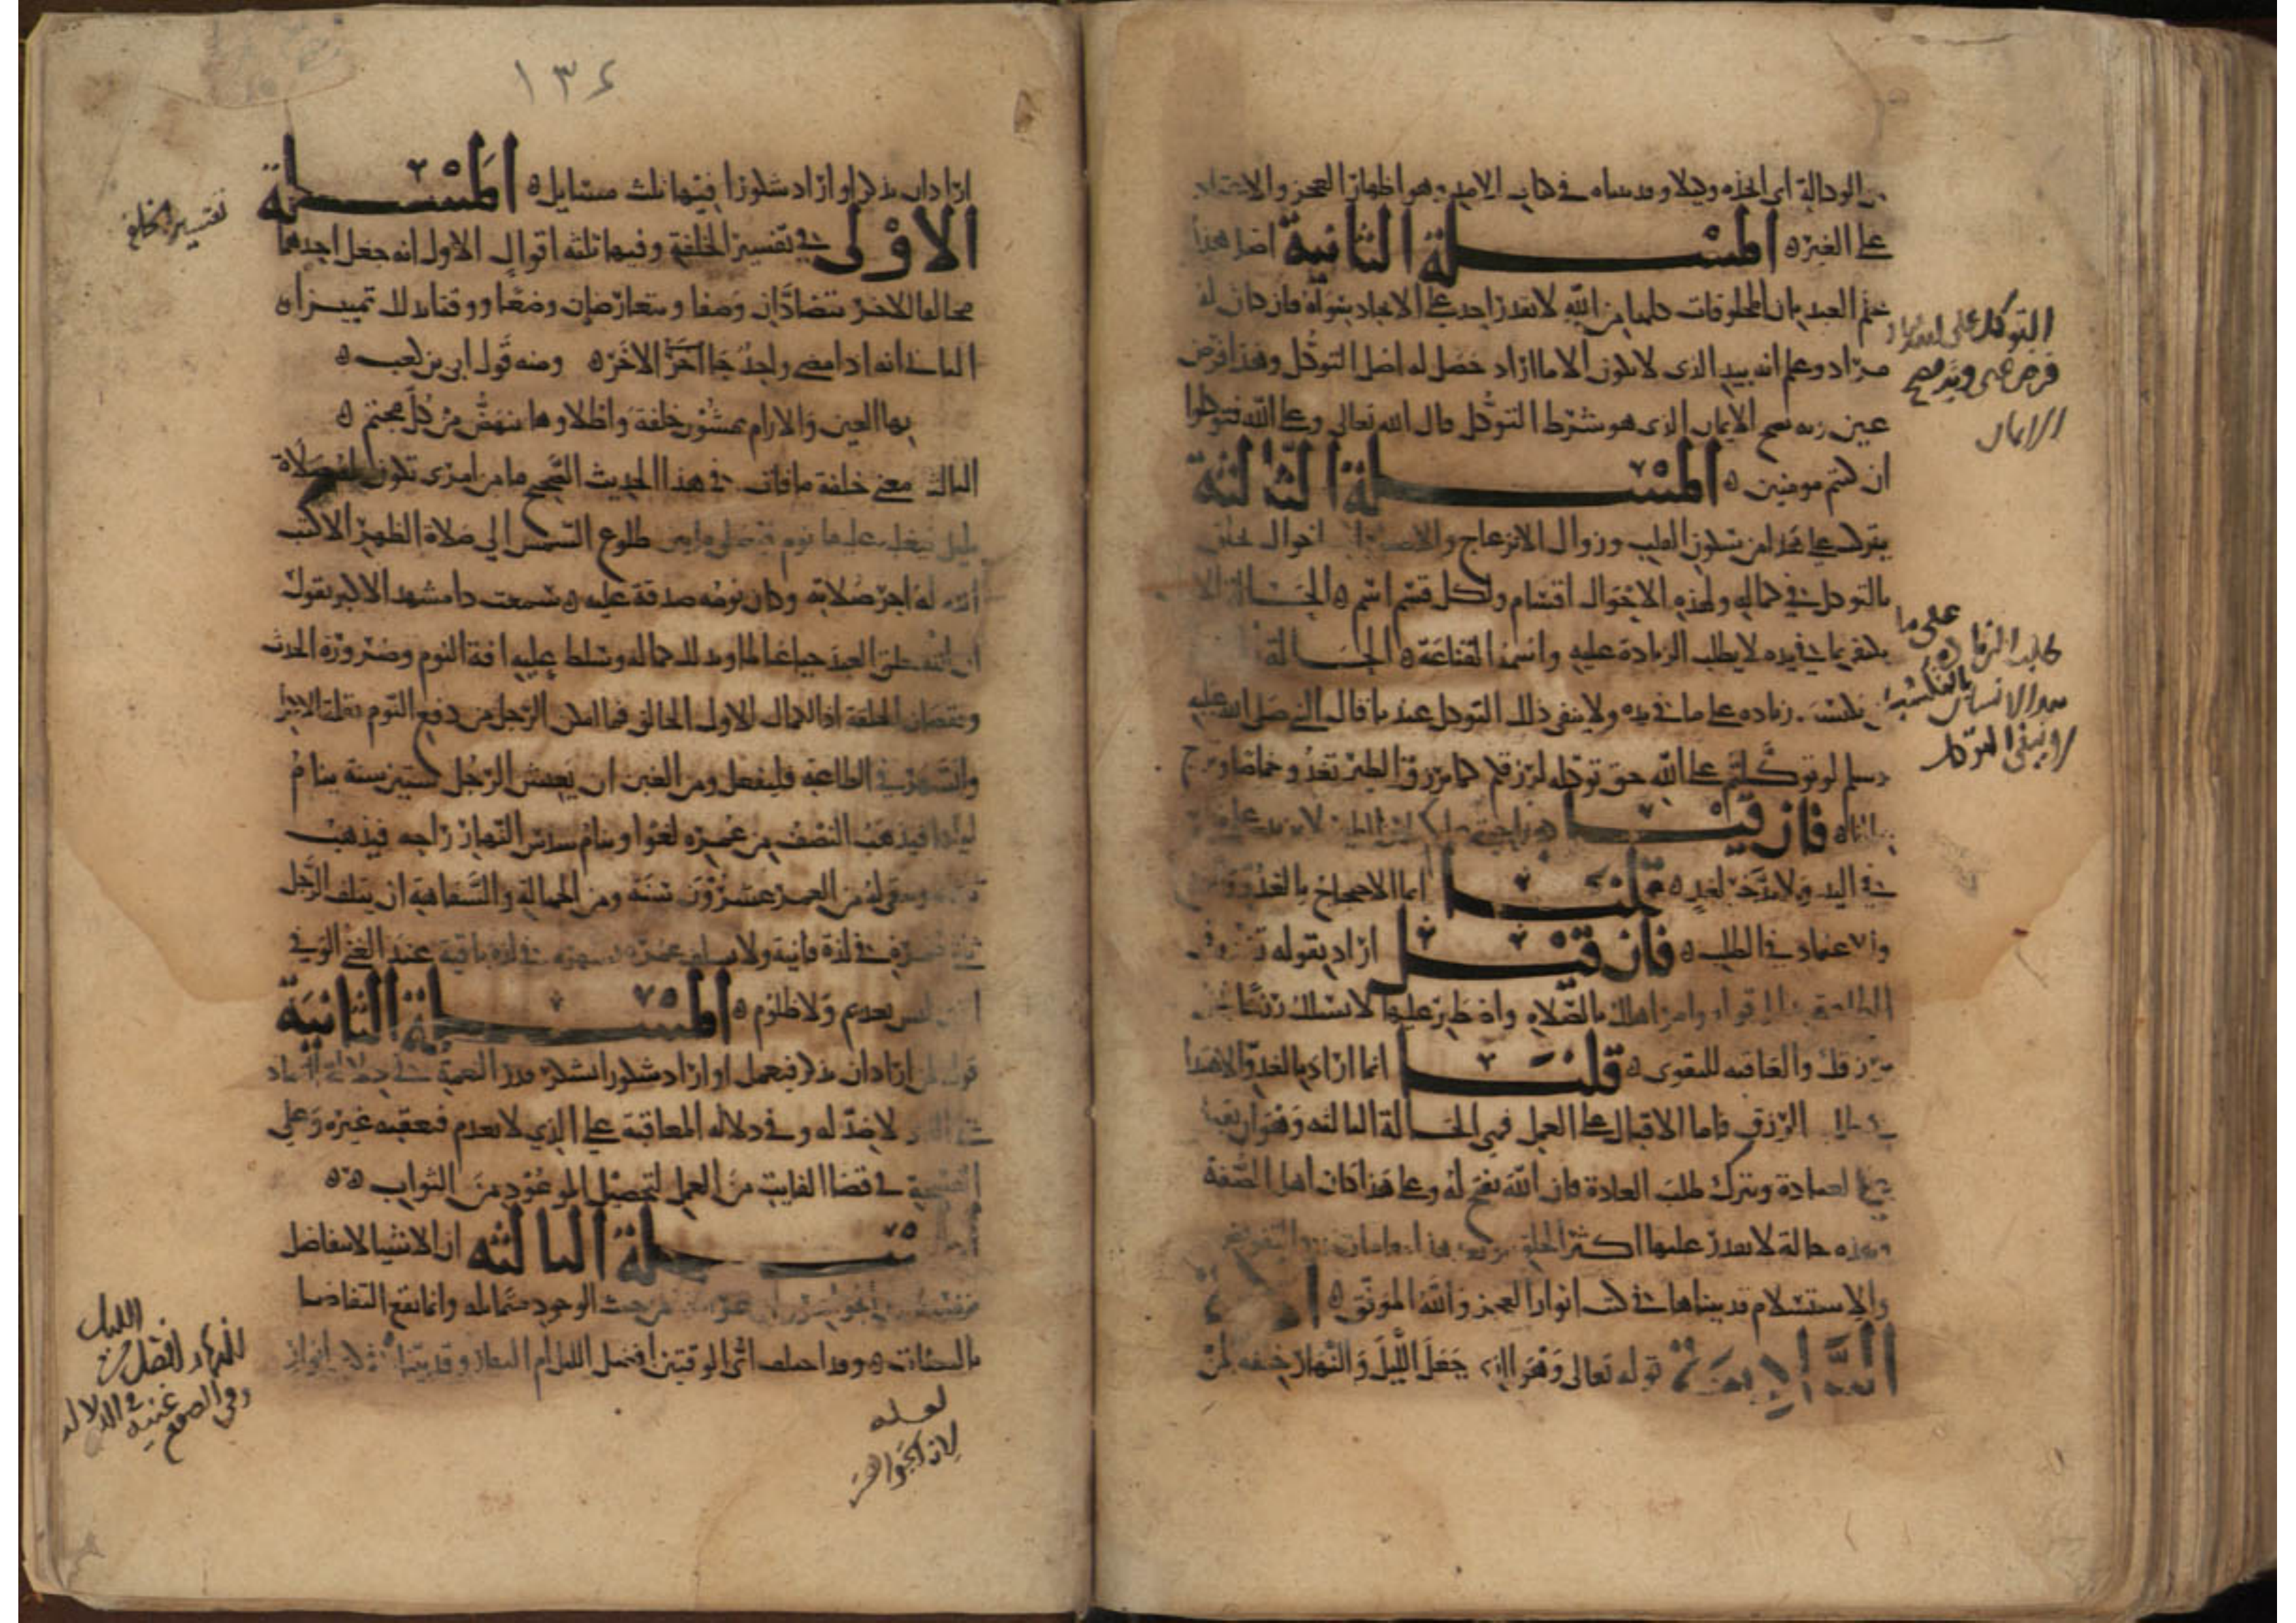 من الوكالة اى اتخذه وكيلا وقد بيناه في كتاب الامد وهو اظهار العجز والاعتماد
على الغير ه المسئلة الثانية اصل هذا
علم العبد بان المخلوقات كلها من الله لا يقدر احد على الايجاد سواه فان كان له
مراد وعلم انه بيد الذى لا يكون الا ما اراد حصل له اصل التوكل وهذا فرض
عين وبه يصح الايمان الذى هو شرط التوكل قال الله تعالى وعلى الله فتوكلوا
ان كنتم مومنين ه المسئلة الثالثة
يتركب على هذا من سكون القلب وزوال الانزعاج والاضطراب احوال تلحق
بالتوكل في كماله ولهذه الاحوال اقسام ولكل قسم اسم ه الحالة الاولى
يكتفي بما في يده لا يطلب الزيادة عليه واسمه القناعة ه الحالة
يكتسب زيادة على ما في يده ولا ينفى ذلك التوكل عنه قال النبي صلى الله عليه
وسلم لو توكلتم على الله حق توكله لرزقكم كما يرزق الطير تغدو خماصا وتروح
بطانا ه فان قيل هذا حجة عليك لان الطير لا يزيد على ما
في اليد ولا يدخر لغد ه قلنا انما الاحتجاج بالغدو
والاعتماد في الطلب ه فان قيل اراد بقوله تغدو في
الطاعة بدليل قوله وامر اهلك بالصلاة واصطبر عليها لا نسئلك رزقا نحن
نرزقك والعاقبة للتقوى ه قلنا انما اراد بالغدو الاغتداء
في طلب الرزق فاما الاقبال على العمل فهي الحالة الثالثة وهو ان يقبل
على العبادة ويترك طلب العادة فان الله يفتح له وعلى هذا كان اهل الصفة
وهذه حالة لا يقدر عليها اكثر الخلق وبعد هذا مقامات من التفويض
والاستسلام قد بيناها في كتاب انوار الفجر والله الموفق ه الاية
الرابعة قوله تعالى وهو الذي جعل الليل والنهار خلفة لمن
التوكل على الله
فرض عين وبه يصح
الايمان
على ما
طلب الزيادة
بيد الانسان بالتكسب
لا ينفى التوكل
١٣٤
اراد ان يذكر او اراد شكورا فيها ثلث مسايل ه المسئلة
الاولى في تفسير الخلفة وفيها ثلثه اقوال الاول انه جعل احدهما
مخالفا للاخر يتضادان وصفا ويتعارضان وضعا ووقتا بذلك تميزا ه
الثانى انه اذا مضى واحد جا اخر الاخر ه ومنه قول ابي بن كعب ه
بها العين والارام يمشون خلفة واطلاوها ينهض من كل مجثم ه
الثالث معنى خلفة ما فات في هذا الحديث الصحيح ما من امرى تكون له صلاة
بليل فيغلبه عليها نوم فيصلى ما بين طلوع الشمس الى صلاة الظهر الا كتب
الله له اجر صلاته وكان نومه صدقة عليه ه سمعت ذا مشهد الاكبر يقول
ان الله خلق العبد حيا عالما وبذلك كماله وسلط عليه افة النوم وضرورة الحدث
ونقصان الخلقة اذ الكمال للاول الخالق فما امكن الرجل من دفع النوم بقلة الاكل
والسهر في الطاعة فليفعل ومن الغبن ان يعيش الرجل ستين سنة ينام
ليلها فيذهب النصف من عمره لغوا وينام سدس النهار راحه فيذهب
ثلثاه ويبقى له من العمر عشرون سنة ومن الجهالة والسفاهة ان يتلف الرجل
ثلثي عمره في لذة فانية ولا يتلف عمره بسهر في لذة باقية عند الغني الوفي
الذي ليس بعديم ولا ظلوم ه المسئلة الثانية
قوله لمن اراد ان يذكر فيعمل او اراد شكورا يشكر قدر النعمة في دلالة التضاد
على الذي لا ضد له وفي دلالة المعاقبة على الذي لا يعدم فيعقبه غيره وعلى
الفسحة في قضا الفايت من العمل لتحصيل الموعود من الثواب ه ه
المسئلة الثالثة ان الاشيا لا تتفاضل
بانفسها من حيث الوجود متماثلة وانما يقع التفاضل
بالصفات ه وقد اختلف اى الوقتين افضل الليل ام النهار وقد بينا في انوار
تفسير الخلفة
الليل
النهار افضل من
وفي الصوم غنية في الدلالة
لعله
لان الجواهر